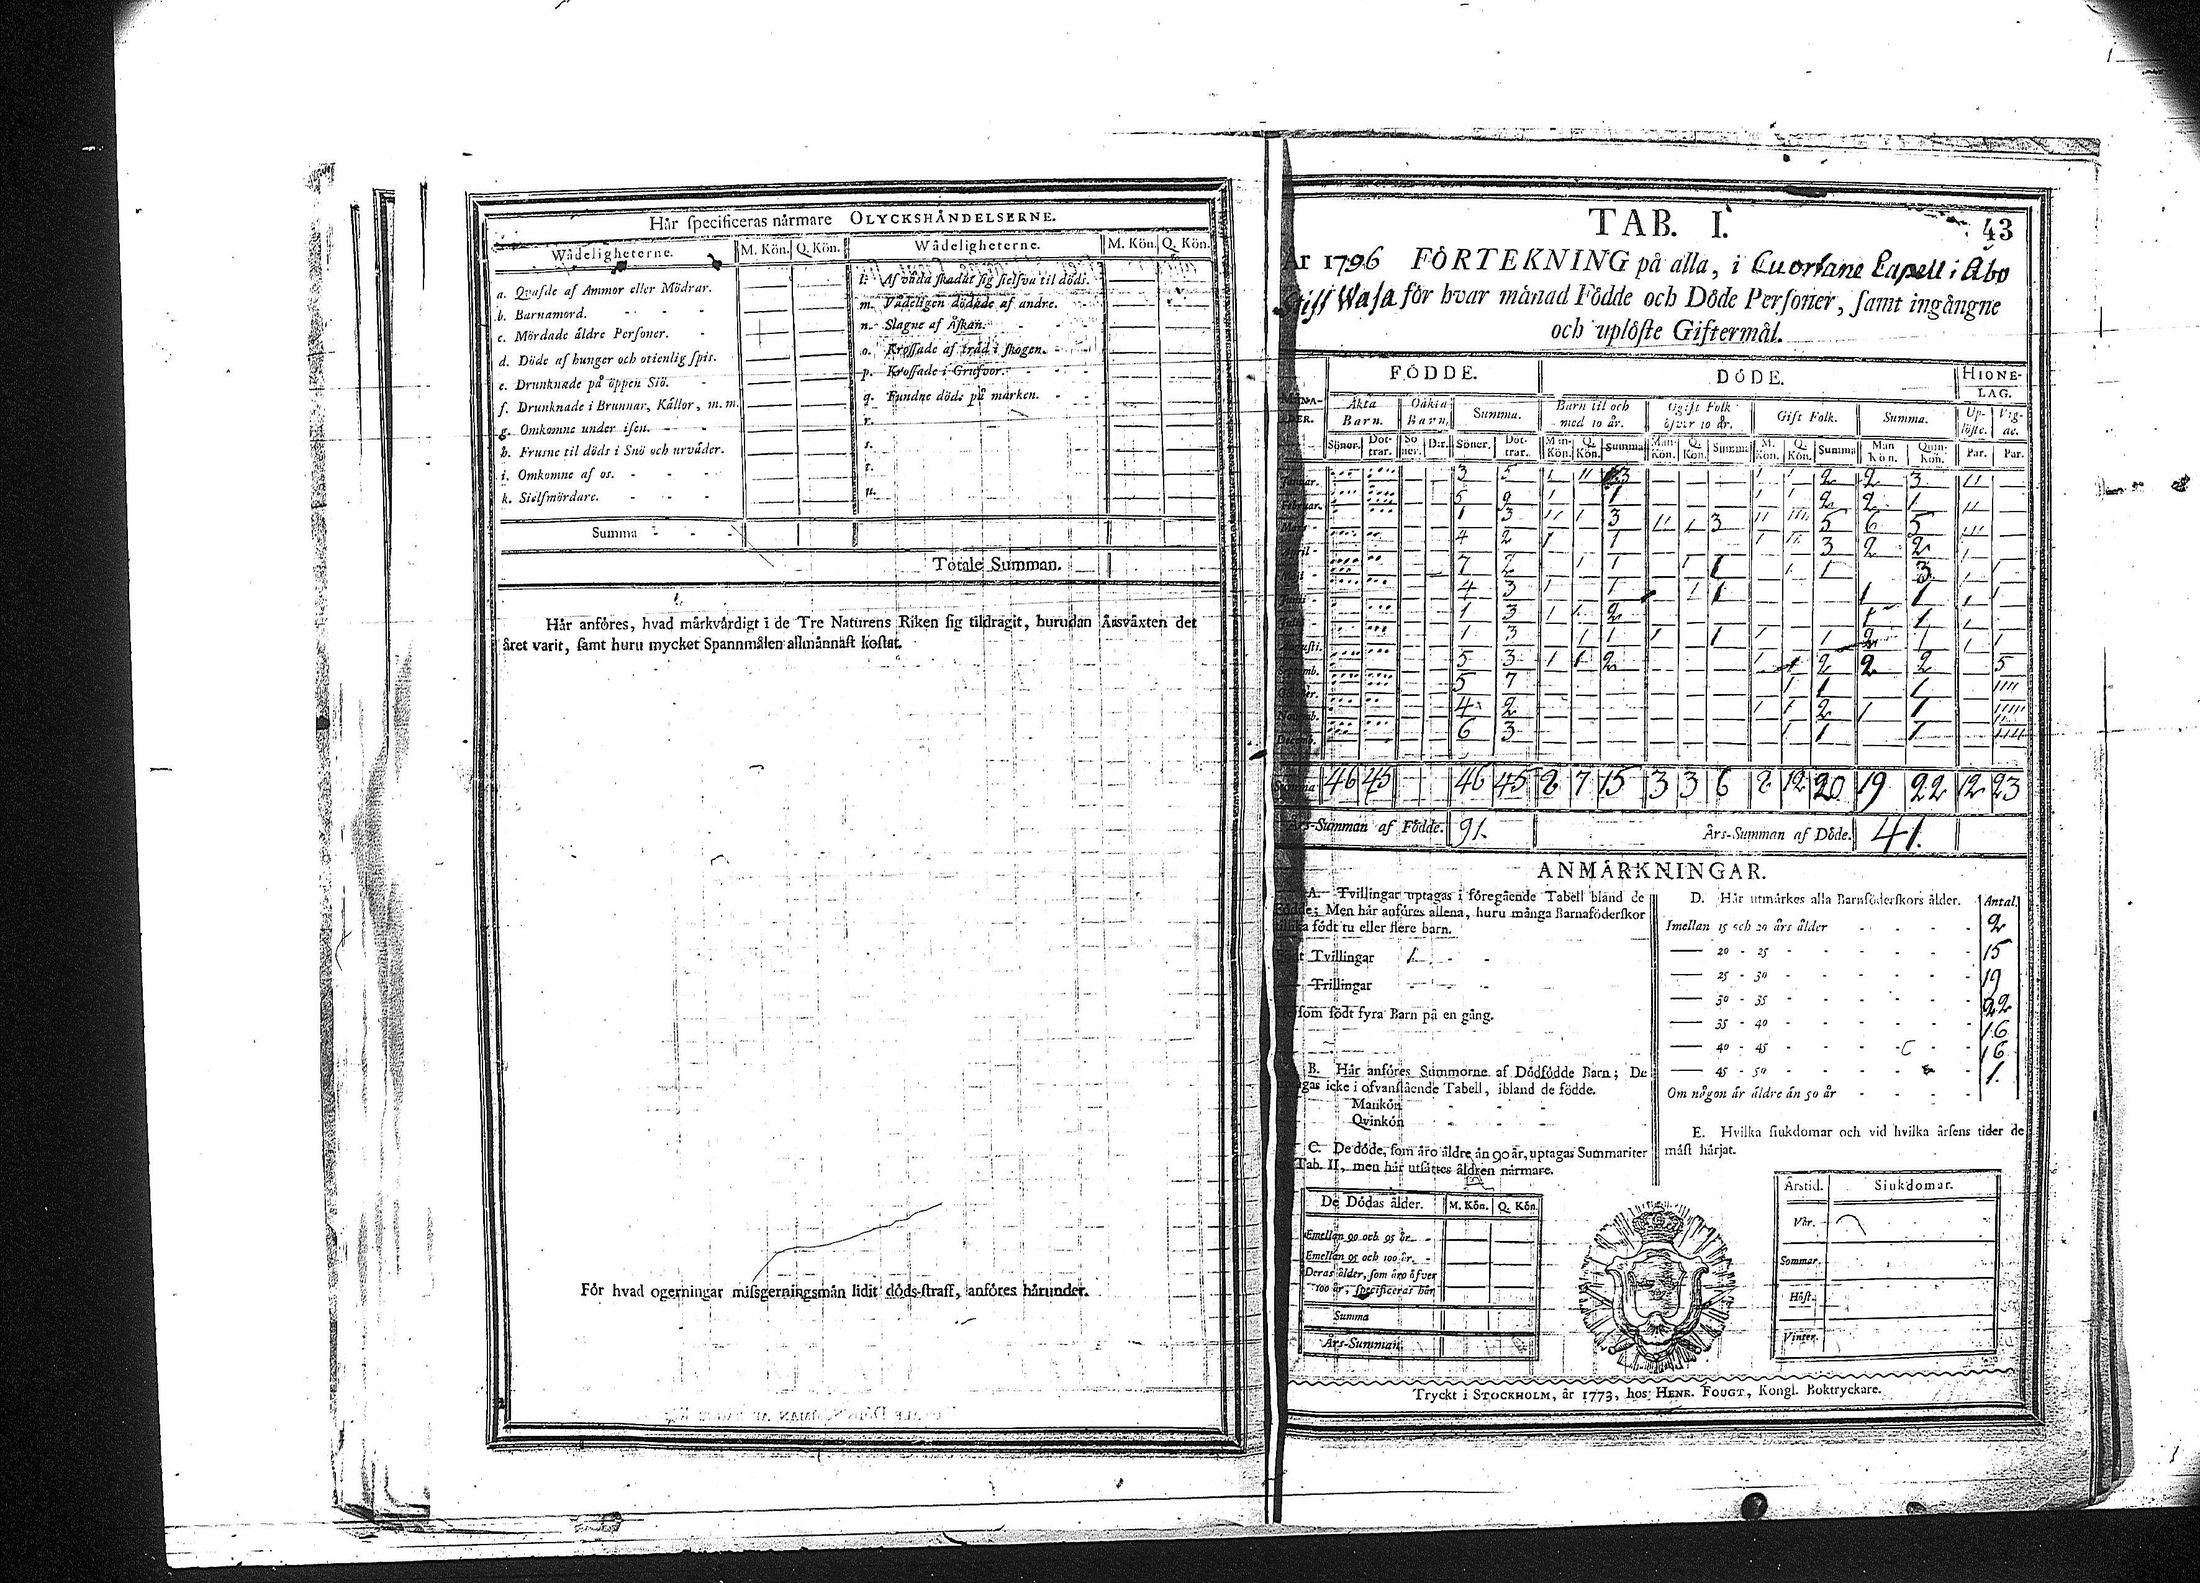 Hår ſpecificeras nårmare OLYCKSHÅNDELSERNE.
Wådeligheterne. M. Kön. Q. Kön. Wådeligheterne. M. Kön. Q. Kön.
a. Qvafde af Ammor eller Mödrar.
b. Barnamord. - - -
c. Mördade äldre Perſoner. -
d. Döde af hunger och otienlig ſpis.
e. Drunknade på öppen Siö. -
f. Drunknade i Brunnar, Kållor, m. m.
g. Omkomne under iſen. - -
h. Fruſne til döds i Snö och urväder.
i. Omkomne af os. - - -
k. Sielfmördare. - - -
l. Af våda ſkadat ſig ſielfva til döds.
m. Vådeligen dödade af andre.
n. Slagne af Åſkan.
o. Kroſſade af tråd i ſkogen.
p. Kroſſade i Grufvor.
q. Fundne döde på marken.
r.
s.
t.
u.
Summa - - -
Totale Summan.
Hår anföres, hvad mårkvårdigt i de Tre Naturens Riken ſig tildragit, hurudan Årsvåxten det
året varit, ſamt huru mycket Spannmålen allmånnaſt koſtat.
För hvad ogerningar miſsgerningsmån lidit döds-ſtraff, anföres hårunder.
TAB. I. 43
År 1796 FÖRTEKNING på alla, i Cuortane Capell i Åbo
Stift Waſa för hvar månad Födde och Döde Perſoner, ſamt ingångne
och uplöſte Giftermål.
FÖDDE. DÖDE. HIONE-
LAG.
MÅNA-
DER. Äkta
Barn. Oäkta
Barn. Summa. Barn til och
med 10 år. Ogift Folk
öfver 10 år. Gift Folk. Summa. Up-
löſte. Vig-
de.
Söner. Döt-
trar. Sö
ner. D:r. Söner. Döt-
trar. Man
Kön. Q.
Kön. Summa Man
Kön. Q.
Kön. Summa M.
Kön. Q.
Kön. Summa Man
Kön. Quin-
kön. Par. Par.
Januar. 3 5 1 11 3 1 1 2 2 3 11
Februar. 5 2 1 1 1 1 2 2 1 11
Mars 1 3 11 1 3 11 1 3 11 111 5 6 5 111
April 4 2 1 1 1 11 3 2 2 1
7 2 1 1 1 1 1 1 3 1 1
4 3 1 1 1 1 1 1 1
1 3 1 1 2 1 1 1
Auguſti. 1 3 1 1 1 1 1 1 2 1 1 1
Septemb. 5 3 1 1 2 1 1 2 2 2 5
October. 5 7 1 1 1 1111
Novemb. 4 2 1 1 2 1 1
6 3 1 1 1
Summa 46 45 46 45 8 7 15 3 3 6 8 12 20 19 22 12 23
Års-Summan af Födde. 91. Års-Summan af Döde. 41.
ANMÄRKNINGAR.
A. Tvillingar uptagas i föregående Tabell bland de
Födde; Men hår anföres allena, huru många Barnaföderſkor
födt tu eller flere barn.
Tvillingar 1. - -
Trillingar
ſom födt fyra Barn på en gång.
B. Hår anföres Summorne af Dödfödde Barn; De
icke i ofvanſtående Tabell, ibland de födde.
Mankön
Qvinkön
C. De döde, ſom åro åldre ån 90 år, uptagas Summariter
Tab. II, men hår utſåttes åldren nårmare.
De Dödas ålder. M. Kön. Q. Kön.
Emellan 90 och 95 år. -
Emellan 95 och 100 år. -
Deras ålder, ſom åro öfver
100 år, ſpecificeras hår
Summa
Års-Summan
D. Hår utmårkes alla Barnföderſkors ålder. Antal.
Imellan 15 och 20 års ålder - - - - 2
— 20 - 25 - - - - - 15
— 25 - 30 - - - - - 19
— 30 - 35 - - - - - 22
— 35 - 40 - - - - - 16
— 40 - 45 - - - - - 16
— 45 - 50 - - - - - 1.
Om någon år åldre ån 50 år - - - -
E. Hvilka ſiukdomar och vid hvilka årſens tider de
måſt hårjat.
Årstid. Siukdomar.
Vår.
Sommar.
Höſt.
Vinter.
Tryckt i STOCKHOLM, år 1773, hos HENR. FOUGT, Kongl. Boktryckare.